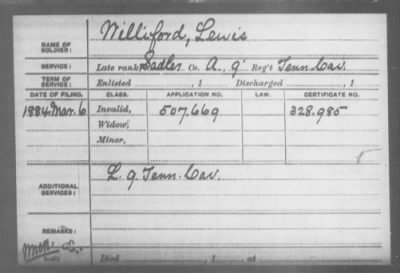 NAME OF SOLDIER: Williford, Lewis
SERVICE: Late rank, Sadler Co. A, 9 Reg't Tenn. Cav.
TERM OF SERVICE: Enlisted , 1 Discharged , 1
DATE OF FILING. CLASS. APPLICATION NO. LAW. CERTIFICATE NO.
1884 Mar. 6 Invalid, 507.669 328.985
Widow,
Minor,
ADDITIONAL SERVICES: L. 9. Tenn. Cav.
REMARKS:
Died , 1 at